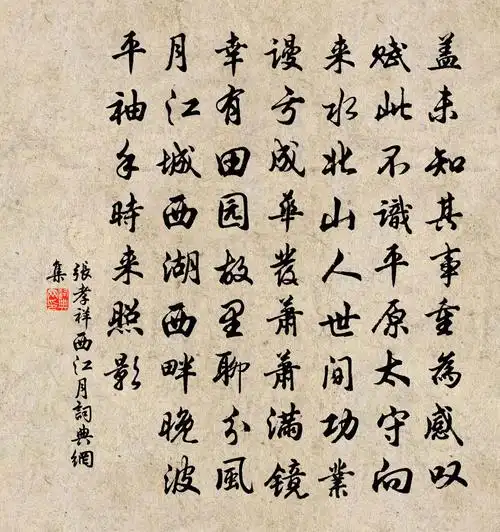 盖未知其事重為感叹
赋此不識平原太守向
来水北山人世间功業
谩亏成華發萧萧满鏡
幸有田园故里聊分風
月江城西湖西畔晚波
平袖手時来照影
張孝祥西江月詞典網
集